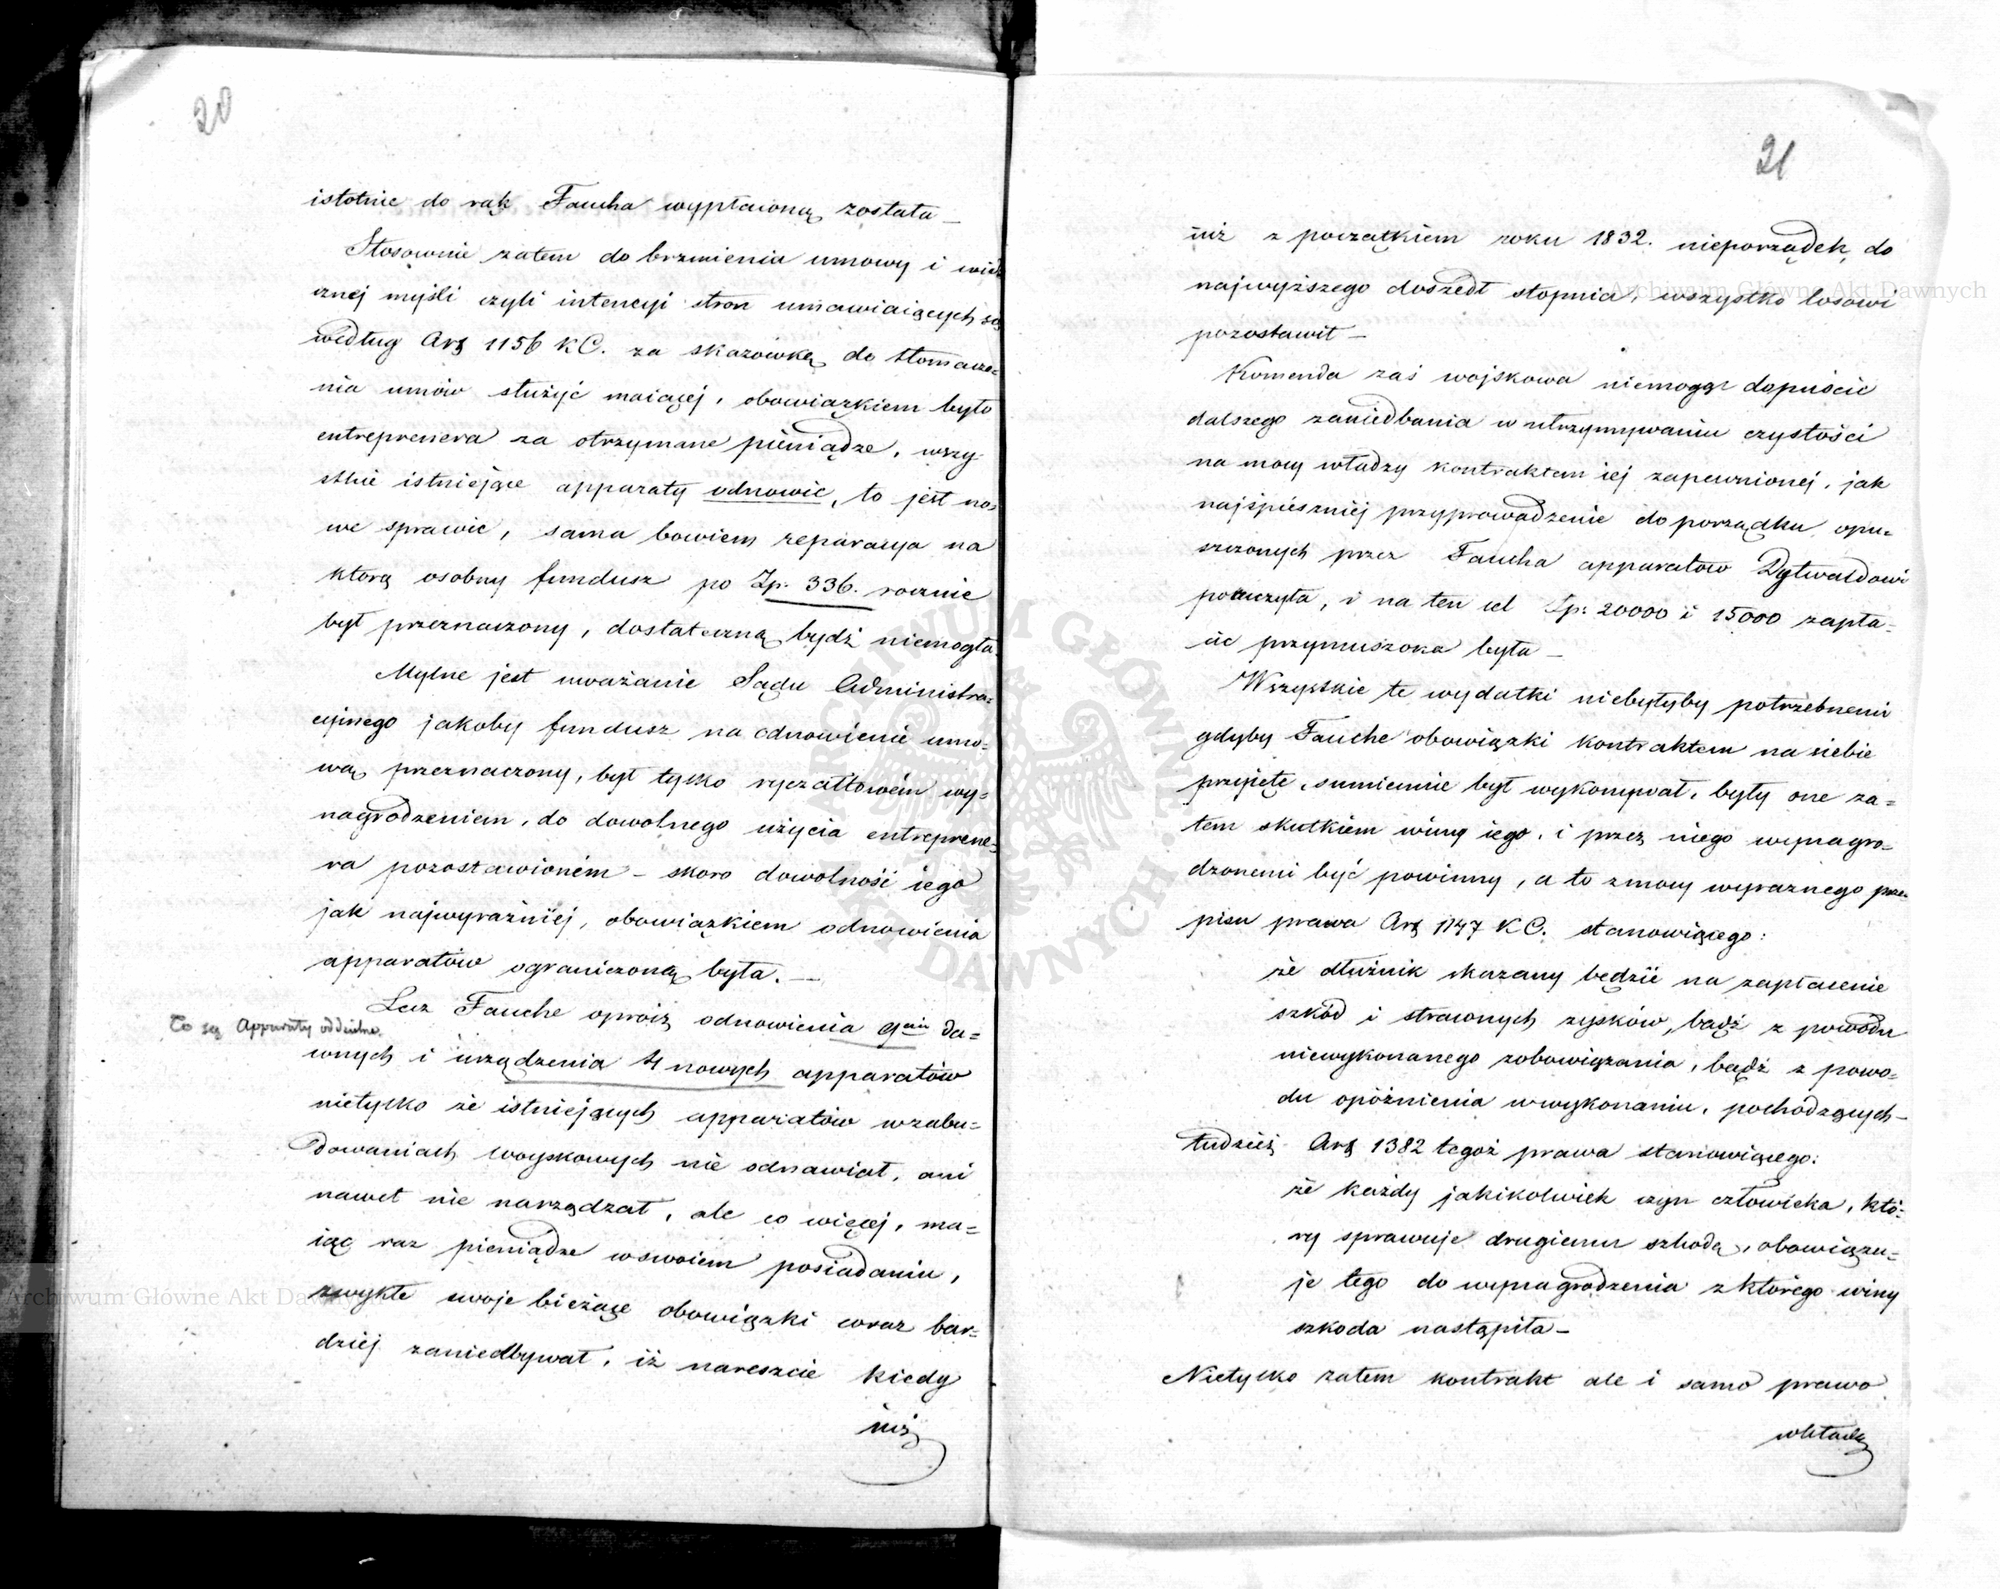 20
istotnie do rąk Faucha wypłaconą została _
Stosownie zatem do brzmienia umowy i
znej myśli czyli intencyi stron umawiaiących się
według Art 1156 KC. za skazówkę do tłomacze=
nia umów służyć maiącej, obowiązkiem było
entreprenera za otrzymane pieniądze, wszy-
stkie istniejące apparaty odnowić, to jest no=
we sprawić, sama bowiem reparacya na
którą osobny fundusz po Zp. 336. rocznie
był przeznaczony, dostateczną bydź niemogła.
Mylne jest uważanie Sądu Administra=
cyjnego jakoby fundusz na odnowienie umo=
wą przeznaczony, był tylko ryczałtowém wy=
nagrodzeniem, do dowolnego użycia entreprene=
ra pozostawioném – skoro dowolność iego
jak najwyraźniéj, obowiązkiem odnowienia
apparatów ograniczoną była. —
Lecz Fauche oprócz odnowienia 9ciu da=
To są Apparaty oddzielne
wnych i urządzenia 4 nowych apparatów
nietylko że istniejących apparatów w zabu=
dowaniach woyskowych nie odnawiał, ani
nawet nie narządzał, ale co więcej, ma=
iąc raz pieniądze w swoiem posiadaniu,
zwykłe swoje bieżące obowiązki coraz bar=
dziej zaniedbywał, iż nareszcie kiedy
iuż
21
iuż z początkiem roku 1832. nieporządek do
najwyższego doszedł stopnia, wszystko losowi
pozostawił —
Komenda zaś wojskowa niemogąc dopuścić
dalszego zaniedbania w utrzymywaniu czystości
na mocy władzy kontraktem iej zapewnionej, jak
najśpieszniéj przyprowadzenie do porządku opu=
szczonych przez Faucha apparatów Dytwaldowi
poruczyła, i na ten cel Zp: 20000 i 15000 zapła=
cić przymuszona była —
Wszystkie te wydatki niebyłyby potrzebnemi
gdyby Fauche obowiązki kontraktem na siebie
przyięte, sumiennie był wykonywał, były one za=
tem skutkiem winy iego, i przez niego wynagro=
dzonemi być powinny, a to z mocy wyraznego prze=
pisu prawa Art 1147 KC. stanowiącego:
że dłużnik skazany będzie na zapłacenie
szkód i straconych zysków, bądź z powodu
niewykonanego zobowiązania, bądź z powo=
du opóźnienia w wykonaniu, pochodzących –
tudzież Art 1382 tegoż prawa stanowiącego:
że każdy jakikolwiek czyn człowieka, któ=
ry sprawuje drugiemu szkodę, obowiązu=
je tego do wynagrodzenia z którego winy
szkoda nastąpiła —
Nietylko zatem kontrakt ale i samo prawo
wkłada
Archiwum Główne Akt Dawnych
Archiwum Główne Akt Dawnych
ARCHIWUM GŁÓWNE AKT DAWNYCH